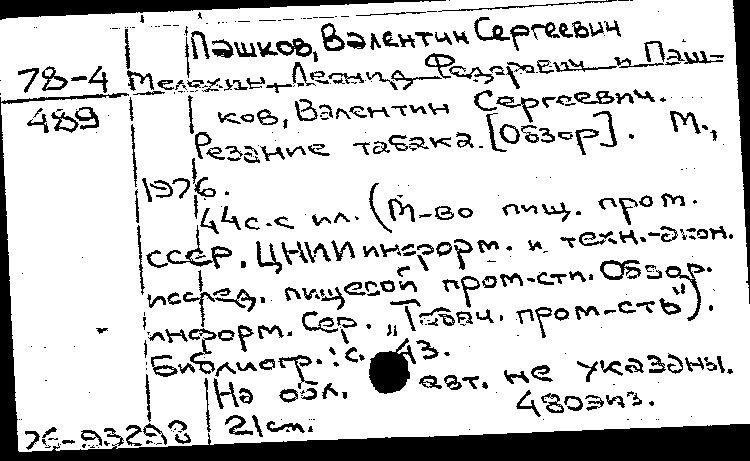 Пашков, Валентин Сергеевич
78-4 Мелехин, Леонид Федорович и Паш-
489 ков, Валентин Сергеевич.
Резание табака. [Обзор]. М.,
1976.
44с. с ил. (М-во пищ. пром.
СССР. ЦНИИ информ. и техн.-экон.
исслед. пищевой пром-сти. Обзор.
информ. Сер. „Табач. пром-сть").
Библиогр.: с. 43.
На обл. авт. не указаны.
480экз.
76-93298 21см.